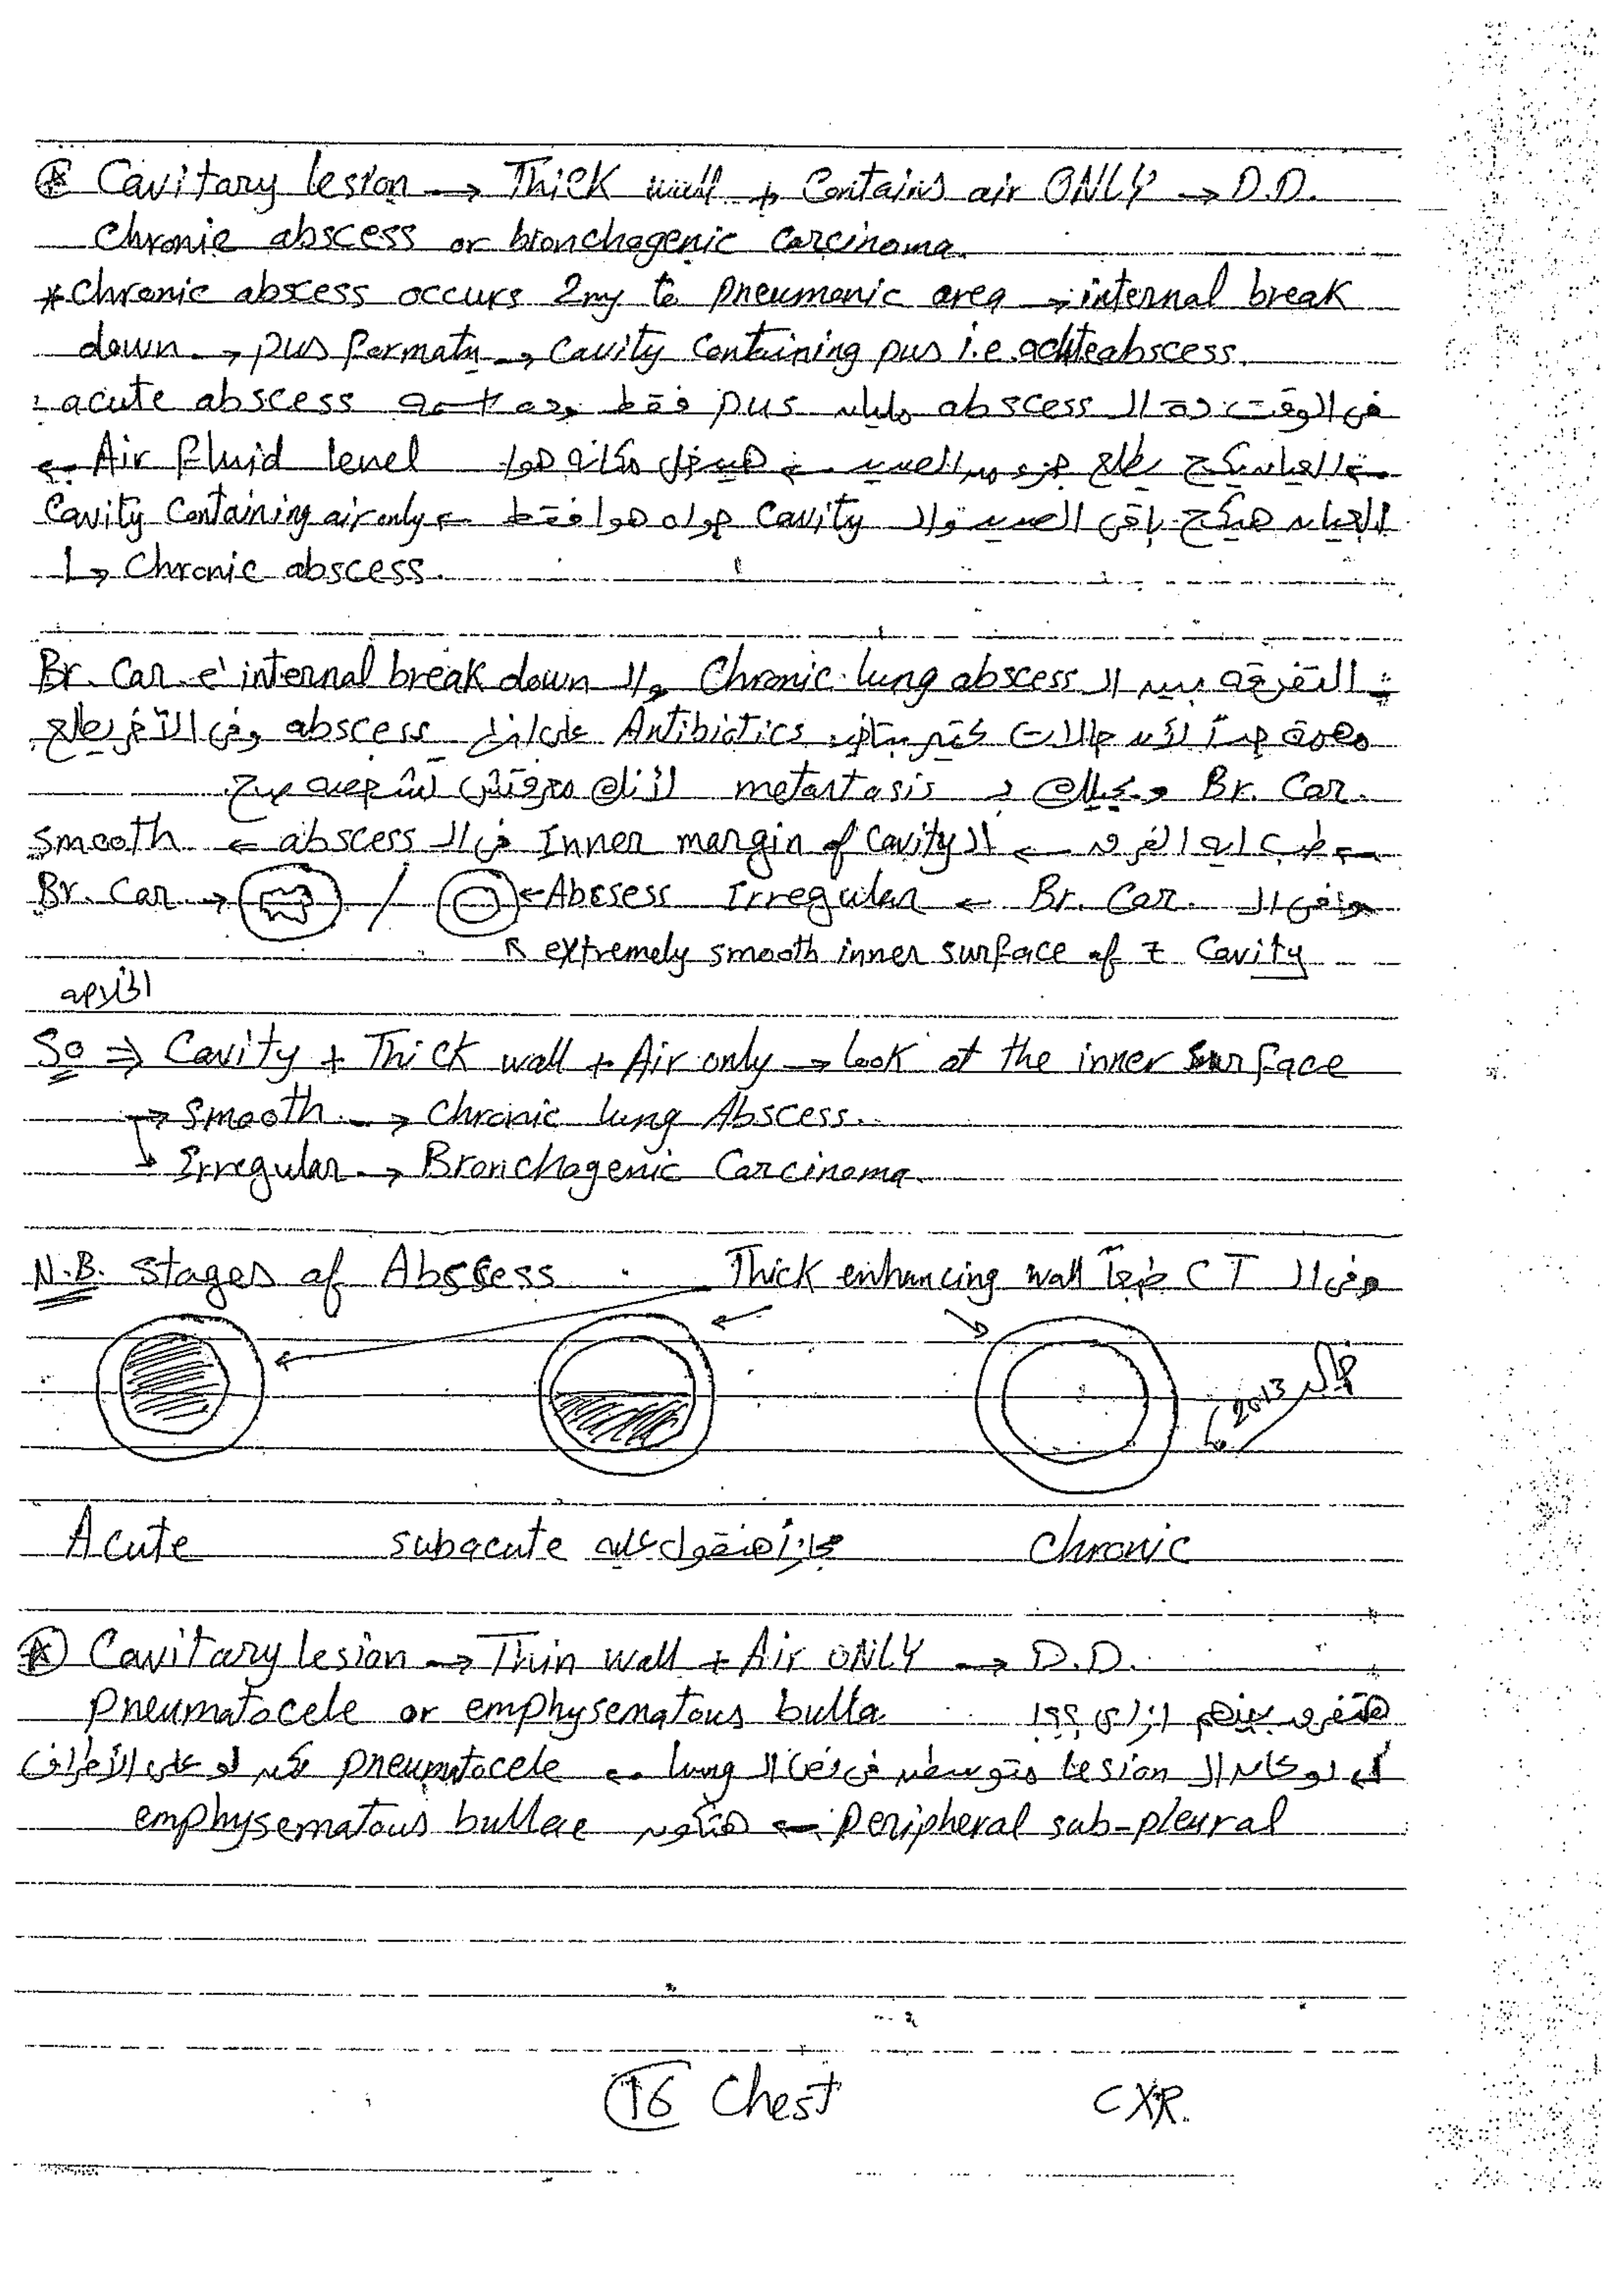 ⊛ Cavitary lesion → Thick wall + Contains air ONLY → D.D.
Chronic abscess or bronchogenic carcinoma.
* Chronic abscess occurs 2ry to pneumonic area → internal break
down → pus formatn → Cavity Containing pus i.e. acute abscess.
فى الوقت ده الـ abscess مليان pus فقط وده اسمه acute abscess :
→ العيان يكح يطلع جزء من الصديد ← هيدخل مكانه هوا Air fluid level ←
العيان هيكح باقى الصديد والـ Cavity جواه هوا فقط ← Cavity Containing air only
↳ Chronic abscess.
التفرقة بين الـ Chronic lung abscess والـ Br. Car. ē internal break down
مهمة جداً لأن حالات كتير بتاخد Antibiotics على انها abscess وفى الآخر يطلع
Br. Car. و metastasis لأنك معرفتش تشخصه صح
← طب ايه الفرق ← الـ Inner margin of Cavity فى الـ abscess ← smooth
وفى الـ Br. Car. ← Irregular Abscess ← / Br. Car. →
↖ extremely smooth inner surface of z Cavity
So ⇒ Cavity + Thick wall + Air only → look at the inner surface
→ Smooth → Chronic lung Abscess.
↳ Irregular → Bronchogenic Carcinoma.
N.B. Stages of Abscess وفى الـ CT طبعاً Thick enhancing wall
2013
Acute subacute هنقول عليه Chronic
⊛ Cavitary lesion → Thin wall + Air ONLY → D.D.
pneumatocele or emphysematous bulla هنفرق بينهم ازاى؟؟!
لو كان الـ lesion متوسطن فى نص الـ lung ← pneumatocele لو على الأطراف
peripheral sub-pleural ← هتكون emphysematous bullae
16 Chest CXR.